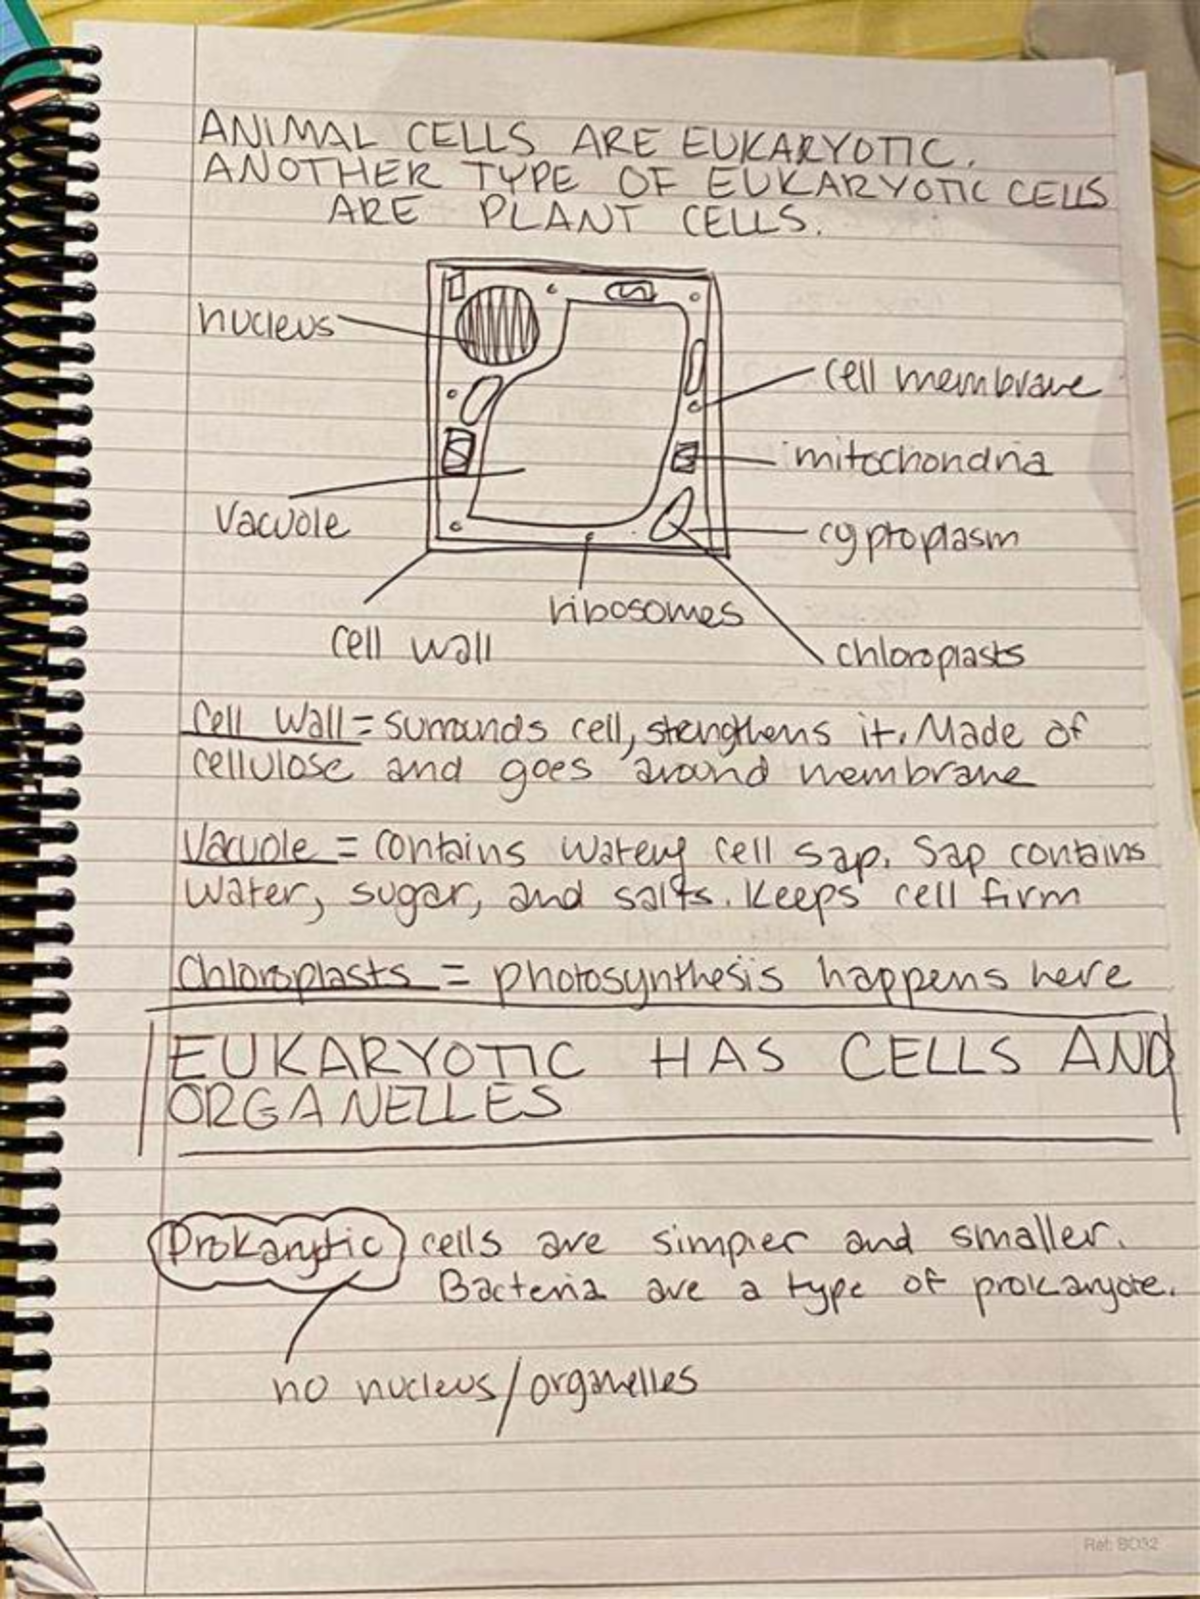 ANIMAL CELLS ARE EUKARYOTIC.
ANOTHER TYPE OF EUKARYOTIC CELLS
ARE PLANT CELLS.
nucleus
cell membrane
mitochondria
vacuole
cyptoplasm
ribosomes
cell wall
chloroplasts
Cell Wall = surrounds cell, strengthens it. Made of
cellulose and goes around membrane
Vacuole = contains watery cell sap. Sap contains
water, sugar, and salts. Keeps cell firm
Chloroplasts = photosynthesis happens here
EUKARYOTIC HAS CELLS AND
ORGANELLES
Prokaryotic cells are simpler and smaller.
Bacteria are a type of prokaryote.
no nucleus/organelles
Ref: BO32